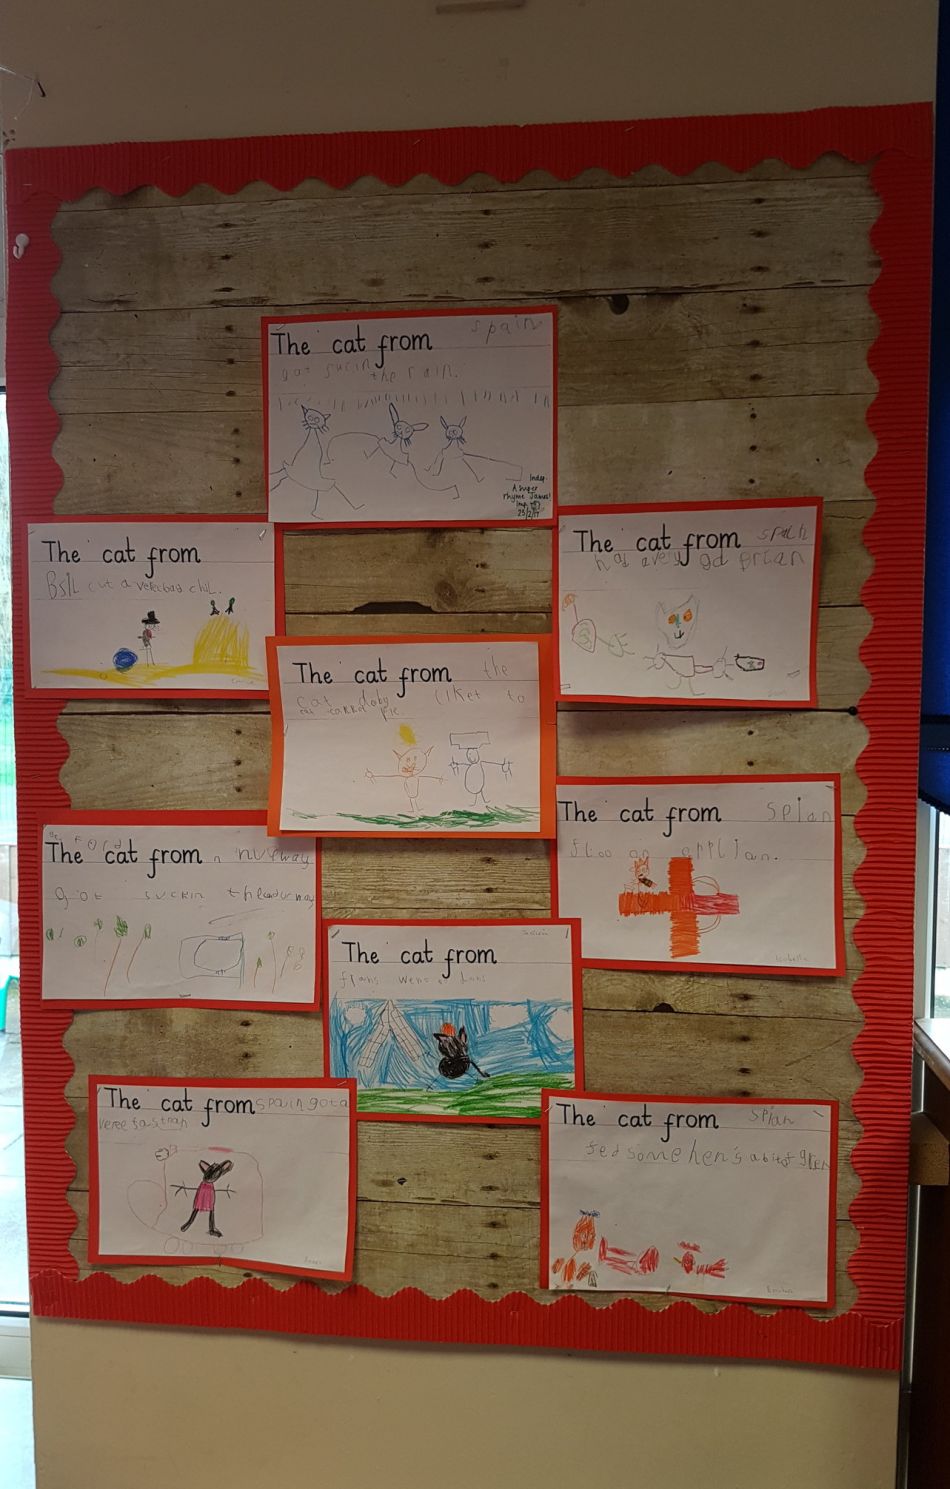 The cat from spain
got sucin the rain.
Indep.
A super
rhyme James!
23/2/17
The cat from
Bsil cut a verebad chil.
The cat from spain
had avery gd brian
The cat from the
cat liket to
pie
The cat from spian
floo an applian.
Isabella
The cat from n nurway
got suckin theadorway
The cat from
flans wens
The cat from spain gota
veree fastrap
The cat from spian
fed some hen's abitof gren